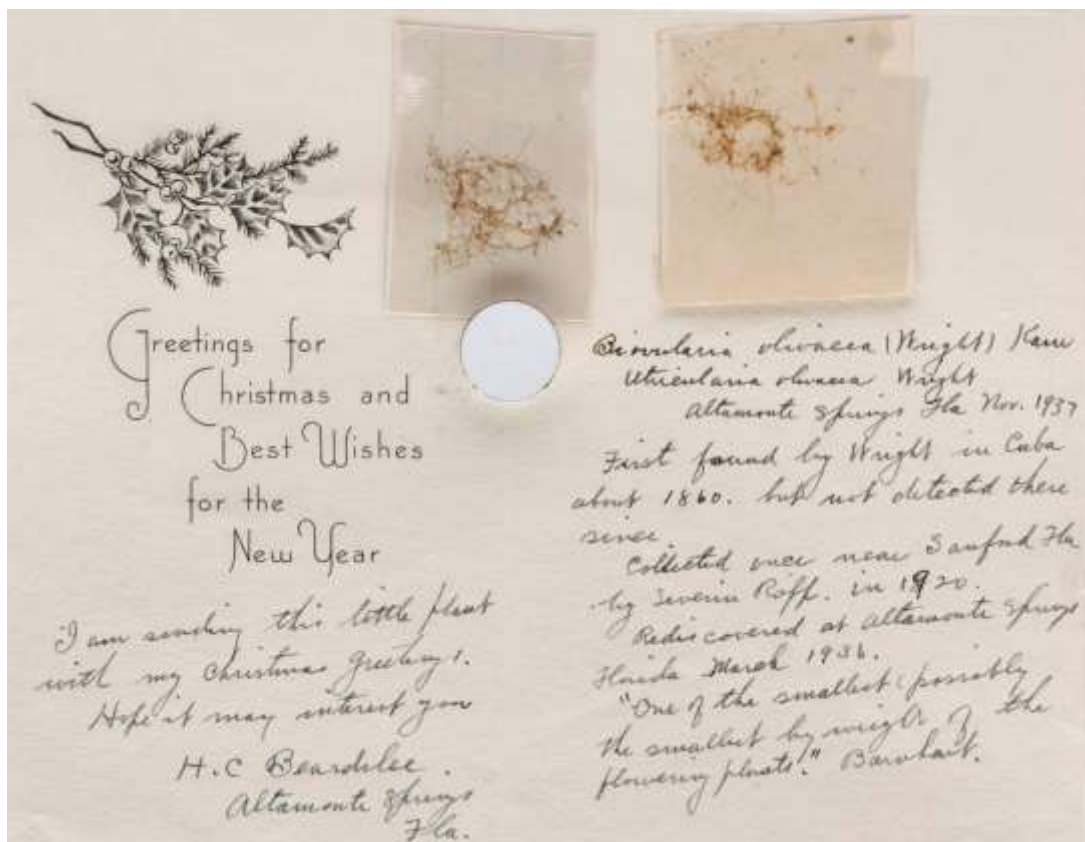 Greetings for
Christmas and
Best Wishes
for the
New Year
I am sending this little plant
with my Christmas greetings.
Hope it may interest you
H.C Beardslee.
Altamonte Springs
Fla.
Biovularia olivacea (Wright) Kam
Utricularia olivacea Wright
Altamonte Springs Fla Nov. 1937
First found by Wright in Cuba
about 1860. but not detected there
since.
Collected once near Sanford Fla
by Severin Rapp. in 1920.
Rediscovered at Altamonte Springs
Florida March 1936.
"One of the smallest, possibly
the smallest by weight of the
flowering plants." Barnhart.